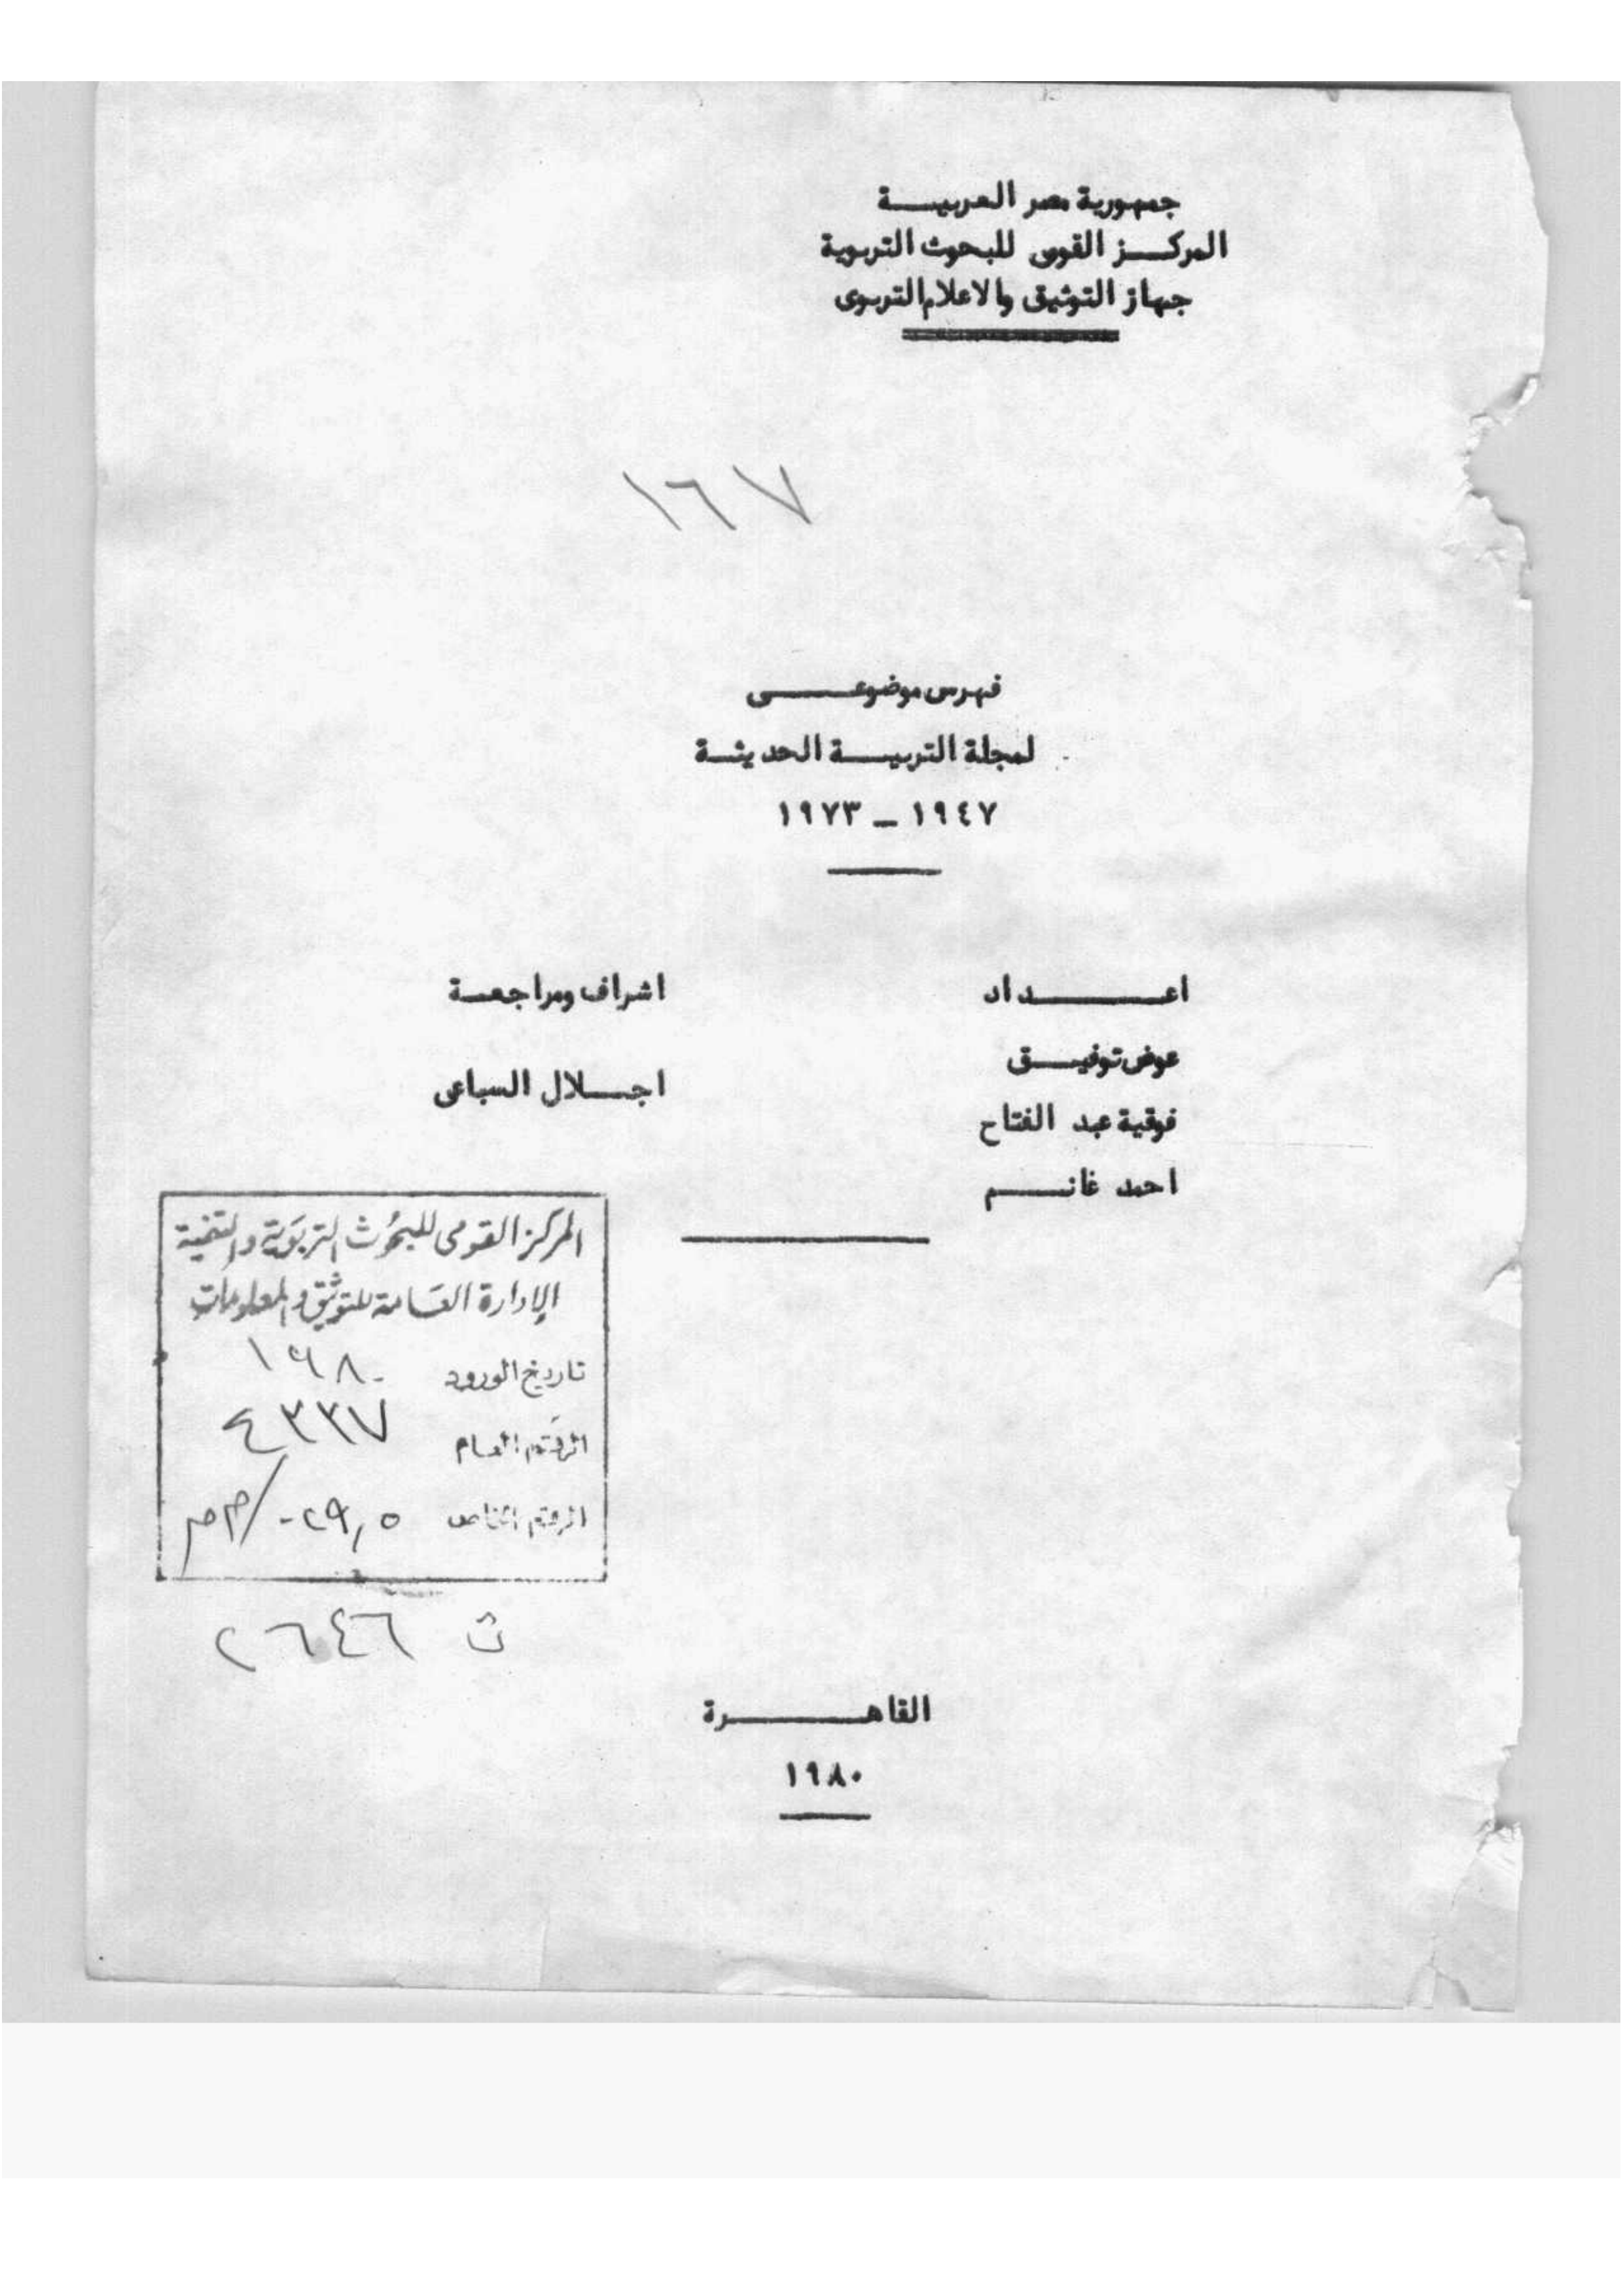 جمهورية مصر العربيـــة
المركـــز القومى للبحوث التربوية
جهاز التوثيق والاعلام التربوى
١٦٧
فهرس موضوعـــــى
لمجلة التربيـــة الحديثـة
١٩٤٧ ــ ١٩٧٣
اعـــــــداد
عوض توفيـــق
فوقية عبد الفتاح
احمد غانـــــم
اشراف ومراجعـة
اجـــلال السباعى
المركز القومى للبحوث التربوية والتنمية
الإدارة العامة للتوثيق والمعلومات
تاريخ الورود ١٩٨٠
الرقم العام ٤٣٣٧
الرقم الخاص
ث ٢٦٤٦
القاهـــــــرة
١٩٨٠